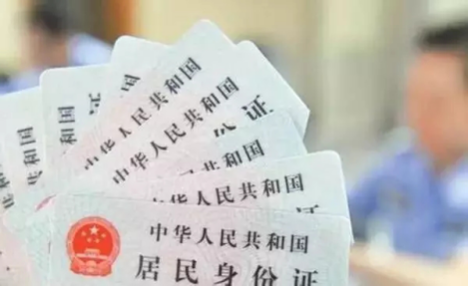 中华人民共和国
中华人民共和国
中华人民共和国
份证
中华人民共和国
身份证
中华人民共和国
居民身份证